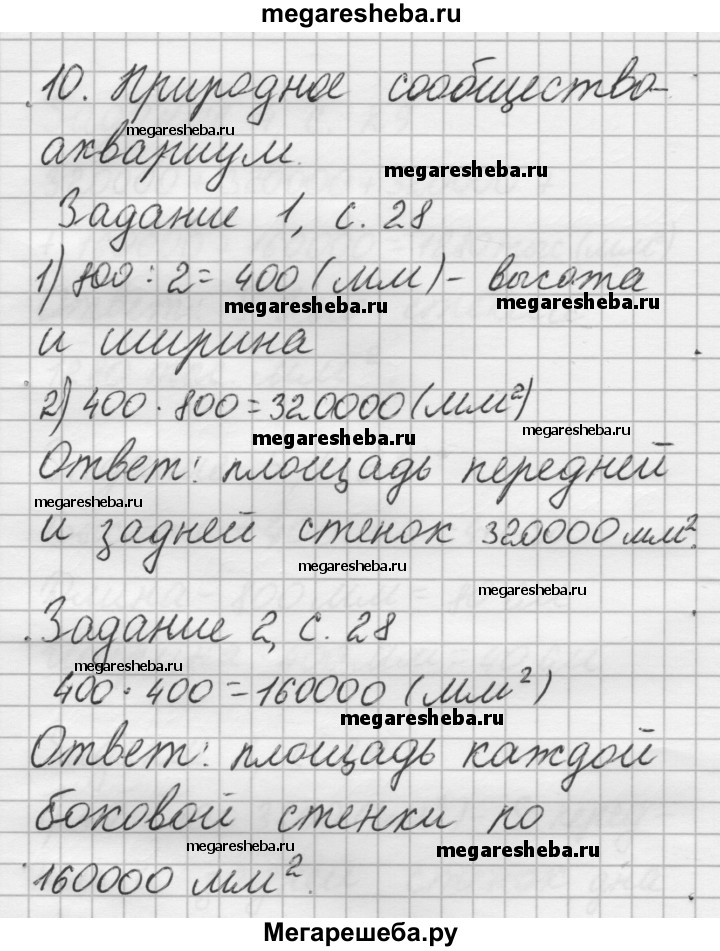 megaresheba.ru
10. Природное сообщество-
megaresheba.ru
аквариум.
megaresheba.ru
Задание 1, с. 28
1) 800 : 2 = 400 (мм) - высота
megaresheba.ru
megaresheba.ru
и ширина
2) 400 · 800 = 320000 (мм²)
megaresheba.ru
megaresheba.ru
Ответ: площадь передней
megaresheba.ru
и задней стенок 320000 мм².
megaresheba.ru
megaresheba.ru
Задание 2, с. 28
megaresheba.ru
400 · 400 = 160000 (мм²)
megaresheba.ru
Ответ: площадь каждой
боковой стенки по
megaresheba.ru
megaresheba.ru
160000 мм².
Мегарешеба.ру